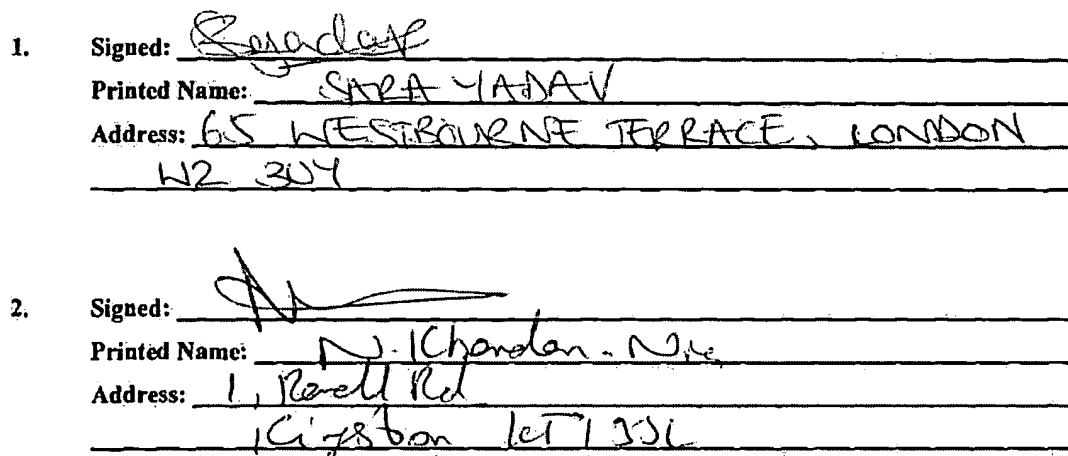 1. Signed:
Printed Name: SARA YADAV
Address: 65 WESTBOURNE TERRACE, LONDON
W2 3UY
2. Signed:
Printed Name: N. Khandan-
Address: 1, Rd
Kingston KT1